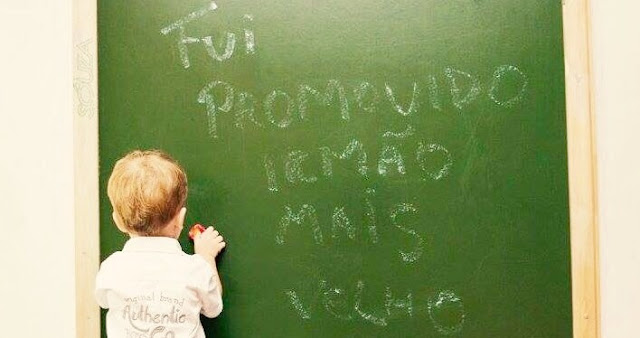 Fui
PROMOVIDO
IRMÃO
MAIS
VELHO
original brand
Authentic
Co